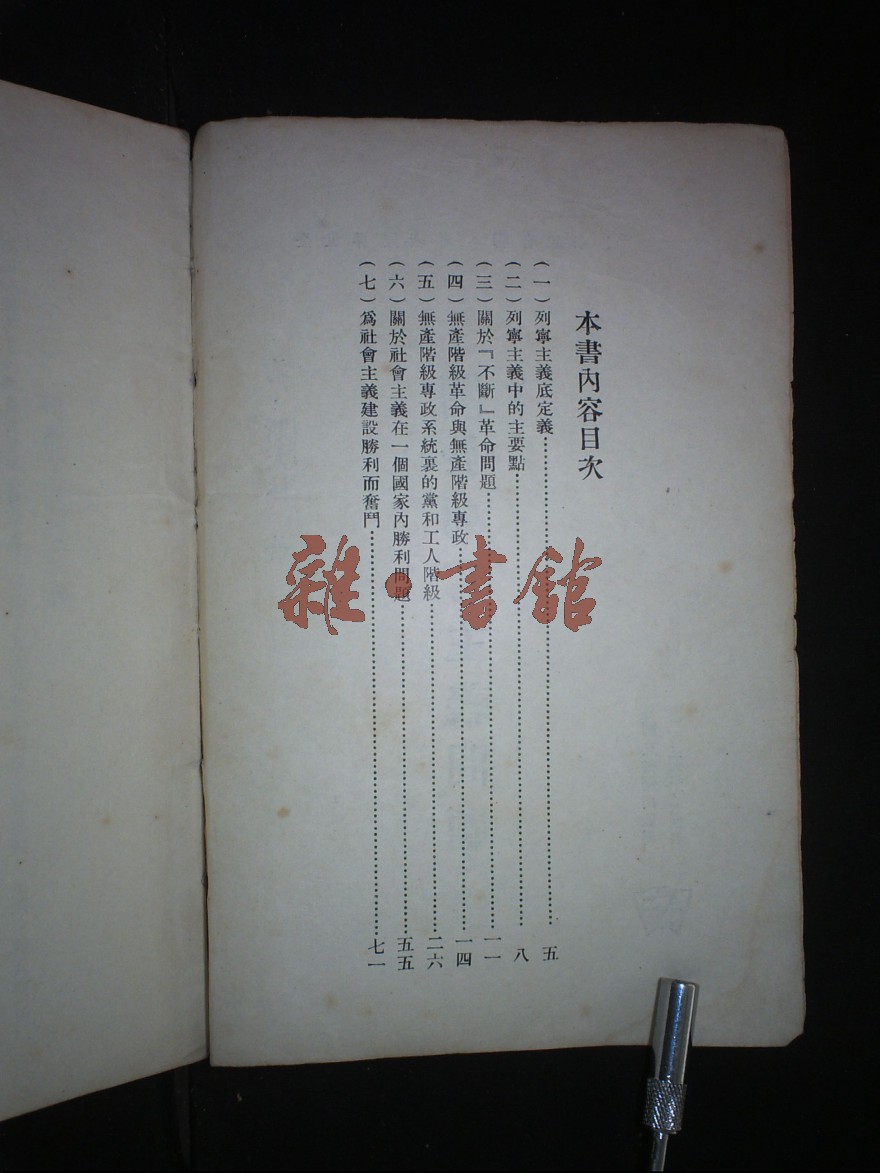 本書內容目次
(一)列寧主義底定義……五
(二)列寧主義中的主要點……八
(三)關於『不斷』革命問題……一一
(四)無產階級革命與無產階級專政……一四
(五)無產階級專政系統裏的黨和工人階級……二六
(六)關於社會主義在一個國家內勝利問題……五五
(七)爲社會主義建設勝利而奮鬥……七一
雜·書館